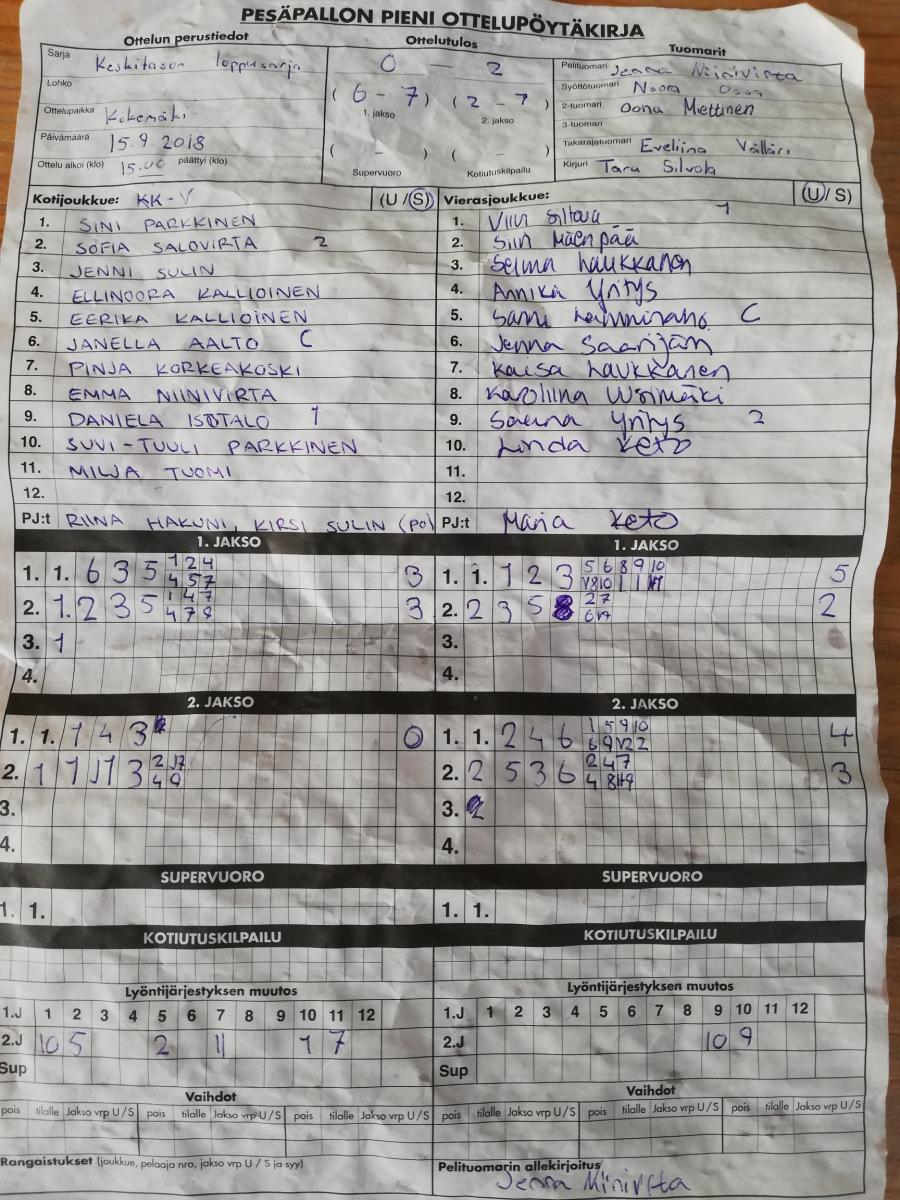 PESÄPALLON PIENI OTTELUPÖYTÄKIRJA
Ottelun perustiedot Ottelutulos Tuomarit
Sarja Keskitason loppusarja
Lohko
Ottelupaikka Kokemäki
Päivämäärä 15.9 2018
Ottelu alkoi (klo) 15.00 päättyi (klo)
0 – 2
(6 – 7) (2 – 7)
1. jakso 2. jakso
( – ) ( – )
Supervuoro Kotiutuskilpailu
Pelituomari Jenna Niinivirta
Syöttötuomari Noora
2-tuomari Oona Miettinen
3-tuomari
Takarajatuomari Eveliina
Kirjuri Taru Silvola
Kotijoukkue: KK-V (U/S)
1. SINI PARKKINEN
2. SOFIA SALOVIRTA 2
3. JENNI SULIN
4. ELLINOORA KALLIOINEN
5. EERIKA KALLIOINEN
6. JANELLA AALTO C
7. PINJA KORKEAKOSKI
8. EMMA NIINIVIRTA
9. DANIELA ISOTALO 1
10. SUVI-TUULI PARKKINEN
11. MILJA TUOMI
12.
PJ:t RIINA HAKUNI, KIRSI SULIN (po)
Vierasjoukkue: (U/S)
1. Viivi Siltava 1
2. Siiri Mäenpää
3. Selma Haukkanen
4. Annika Yritys
5. C
6. Jenna
7. Kaisa Haukkanen
8. Karoliina
9. Yritys 2
10. Linda Keto
11.
12.
PJ:t Maria Keto
1. JAKSO
1. 1. 6 3 5 1 2 4 3
4 5 7
2. 1. 2 3 5 1 4 7 3
4 7 8
3. 1
4.
1. JAKSO
1. 1. 1 2 3 5 6 8 9 10 5
2. 2 3 5 2 7 2
3.
4.
2. JAKSO
1. 1. 1 4 3 0
2. 1 1 3 2
4 9
3.
4.
2. JAKSO
1. 1. 2 4 6 1 5 9 10 4
2. 2 5 3 6 2 4 7 3
3.
4.
SUPERVUORO
1. 1.
SUPERVUORO
1. 1.
KOTIUTUSKILPAILU
KOTIUTUSKILPAILU
Lyöntijärjestyksen muutos
1.J 1 2 3 4 5 6 7 8 9 10 11 12
2.J 10 5 2 11 1 7
Sup
Lyöntijärjestyksen muutos
1.J 1 2 3 4 5 6 7 8 9 10 11 12
2.J 10 9
Sup
Vaihdot
pois tilalle Jakso vrp U/S pois tilalle Jakso vrp U/S pois tilalle Jakso vrp U/S
Vaihdot
pois tilalle Jakso vrp U/S pois tilalle Jakso vrp U/S pois tilalle Jakso vrp U/S
Rangaistukset (joukkue, pelaaja nro, jakso vrp U / S ja syy)
Pelituomarin allekirjoitus
Jenna Niinivirta